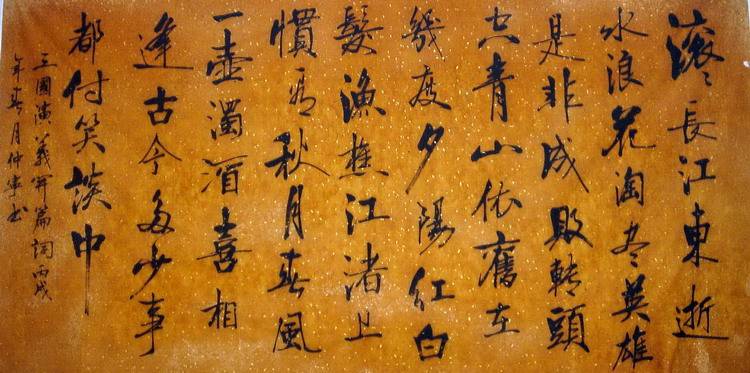 滚々長江東逝
水浪花淘尽英雄
是非成敗轉頭
空青山依舊在
幾度夕陽紅白
髮漁樵江渚上
慣看秋月春風
一壺濁酒喜相
逢古今多少事
都付笑談中
三國演義开篇词丙戌
年春月仲书